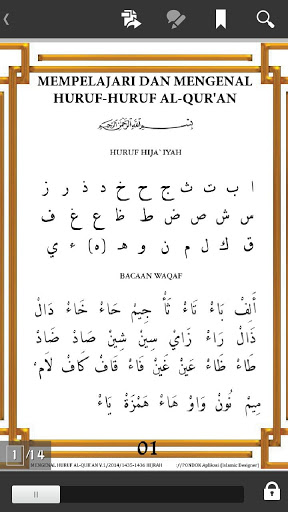 MEMPELAJARI DAN MENGENAL
HURUF-HURUF AL-QUR'AN
بِسْمِ اللَّهِ الرَّحْمَٰنِ الرَّحِيمِ
HURUF HIJA`IYAH
ا ب ت ث ج ح خ د ذ ر ز
س ش ص ض ط ظ ع غ ف
ق ك ل م ن و هـ (ه) ء ي
BACAAN WAQAF
أَلِفْ بَاءْ تَاءْ ثَاْ جِيمْ حَاءْ خَاءْ دَالْ
ذَالْ رَاءْ زَايْ سِيْنْ شِيْنْ صَادْ ضَادْ
طَاءْ ظَاءْ عَيْنْ غَيْنْ فَاءْ قَافْ كَافْ لَامْ
مِيْمْ نُوْنْ وَاوْ هَاءْ هَمْزَةْ يَاءْ
01
1/14
MENGENAL HURUF AL-QUR'AN V.1/2014/1435-1436 HIJRAH
://PONDOK Aplikasi (Islamic Designer)